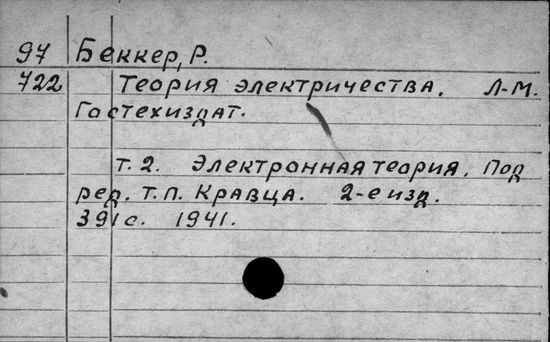 97 Беккер, Р.
722 Теория электричества. Л-М.
Гостехиздат.
т. 2. Электронная теория. Под
ред. Т.П. Кравца. 2-е изд.
391с. 1941.